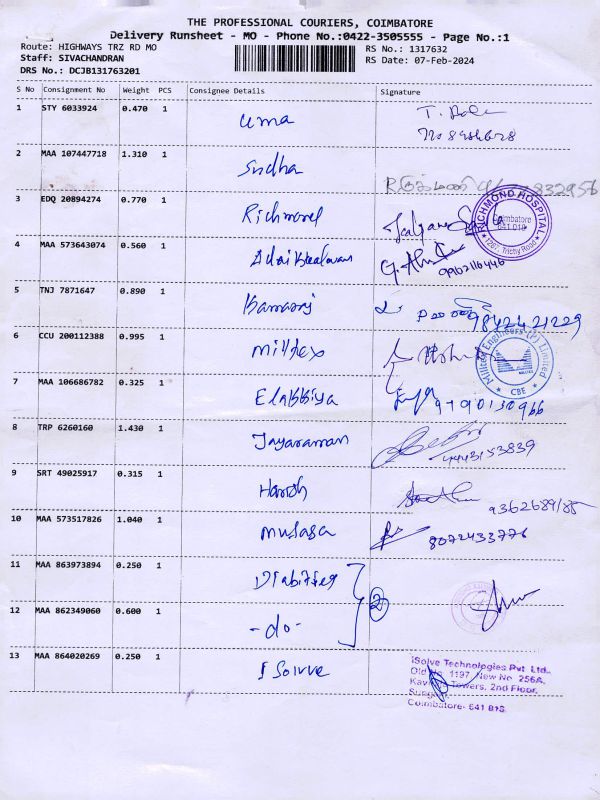 THE PROFESSIONAL COURIERS, COIMBATORE
Delivery Runsheet - MO - Phone No.:0422-3505555 - Page No.:1
Route: HIGHWAYS TRZ RD MO
RS No.: 1317632
Staff: SIVACHANDRAN
RS Date: 07-Feb-2024
DRS No.: DCJB131763201
S No Consignment No Weight PCS Consignee Details Signature
1 STY 6033924 0.470 1 Uma
2 MAA 107447718 1.310 1 Sudha
3 EDQ 20894274 0.770 1 Richmond
RICHMOND HOSPITAL
Coimbatore
641 018
1267, Trichy Road
4 MAA 573643074 0.560 1
5 TNJ 7871647 0.890 1 Kamaraj
9842421229
6 CCU 200112388 0.995 1 Milltex
Milltex Engineers (P) Limited
CBE
7 MAA 106686782 0.325 1 Elakkiya
8 TRP 6260160 1.430 1 Jayaraman
9443153839
9 SRT 49025917 0.315 1 Harish
10 MAA 573517826 1.040 1 Musasa 8072433776
11 MAA 863973894 0.250 1
2
12 MAA 862349060 0.600 1 -do-
13 MAA 864020269 0.250 1 I Solvve
iSolve Technologies Pvt. Ltd.,
Old No. 1197, New No. 256A,
Towers, 2nd Floor,
Coimbatore- 641 018.